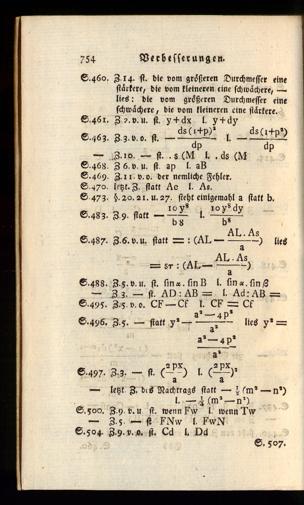 754 Verbesserungen.
S.460. Z.14. st. die vom größeren Durchmesser eine
stärkere, die vom kleineren eine schwächere, —
lies: die vom größeren Durchmesser eine
schwächere, die vom kleineren eine stärkere.
S.461. Z.2.v.u. st. y+dx l. y+dy
S.463. Z.3.v.o. st. — ds(1+p)²/dp l. — ds(1+p²)/dp
— Z.10. — st. . s (M l. . ds (M
S.468. Z.6.v.u. st. ap l. aB
S.469. Z.11.v.o. der nemliche Fehler.
S.470. letzt. Z. statt Ac l. As.
S.473. §.20.21.u.27. steht einigemahl a statt b.
S.483. Z.9. statt — 10y⁸/b8 l. 10y⁸dy/b⁸
S.487. Z.6.v.u. statt =: (AL — AL.As/a) lies
= sr: (AL — AL.As/a)
S.488. Z.5.v.u. st. sinα.sinB l. sinα.sinß
— Z.3. — st. AD:AB = l. Ad:AB =
S.495. Z.5.v.o. CF—Cf l. CF = Cf
S.496. Z.5. — statt y² — a²—4p²/a² lies y² =
a²—4p²/a
S.497. Z.3. — st. (2px/a) l. (2px/a)²
— letzt Z. des Nachtrags statt — ¼(m²—n²)
l. — ¼(m²—n²)
S.500. Z.9.v.u st. wenn Fw l. wenn Tw
— Z.5. — st FNw l. FwN
S.504. Z.9.v.o. st. Cd l. Dd
S. 507.